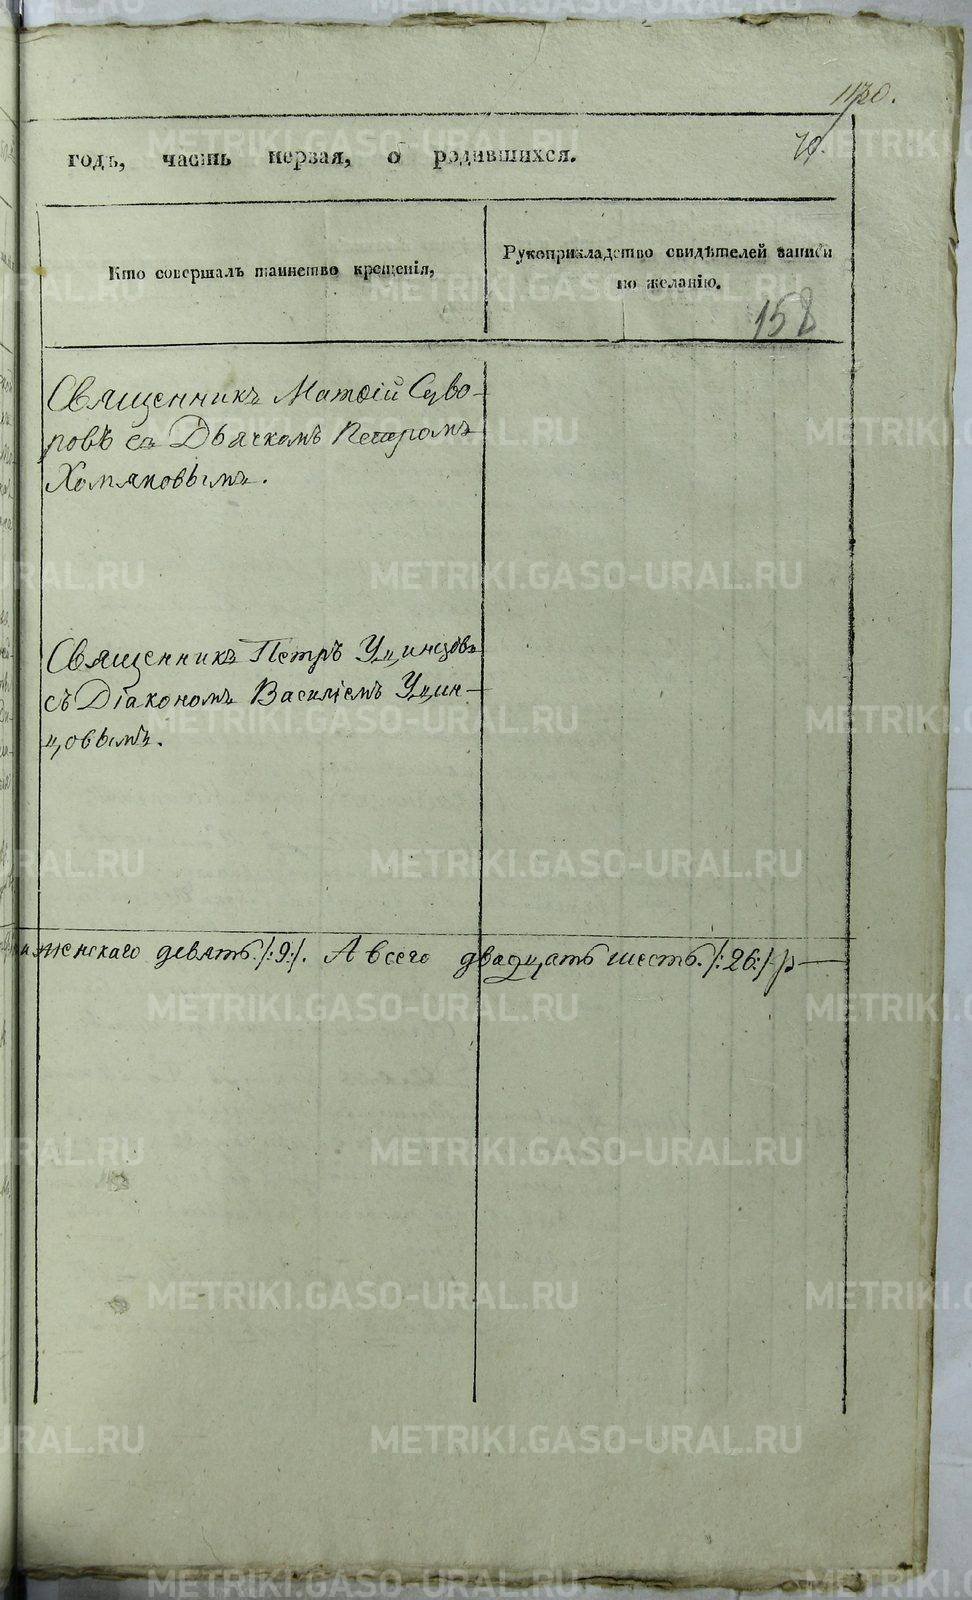 1130.
79.
годъ, часть первая, о родившихся.
Кто совершалъ таинство крещенія,
Рукоприкладство свидѣтелей записи
по желанію.
158
Священникъ Матѳій Суво-
ровъ съ Дьячкомъ Петромъ
Хомяковымъ.
Священникъ Петръ Удинцовъ
съ Діакономъ Василіемъ Удин-
цовымъ.
женскаго девять /:9:/. А всего двадцать шесть /:26:/
METRIKI.GASO-URAL.RU